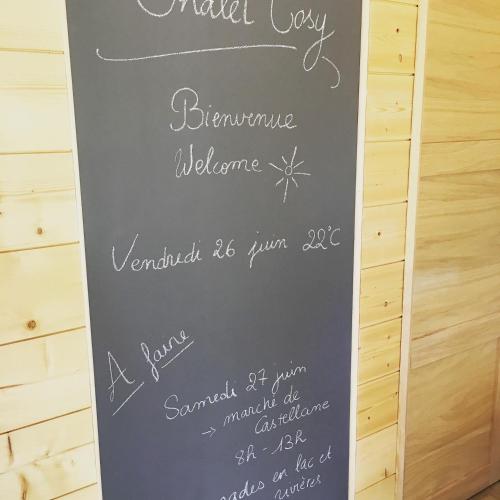 Chalet Cosy
Bienvenue
Welcome
Vendredi 26 juin 22°C
A faire
Samedi 27 juin
→ marché de
Castellane
8h - 13h
en lac et
rivières